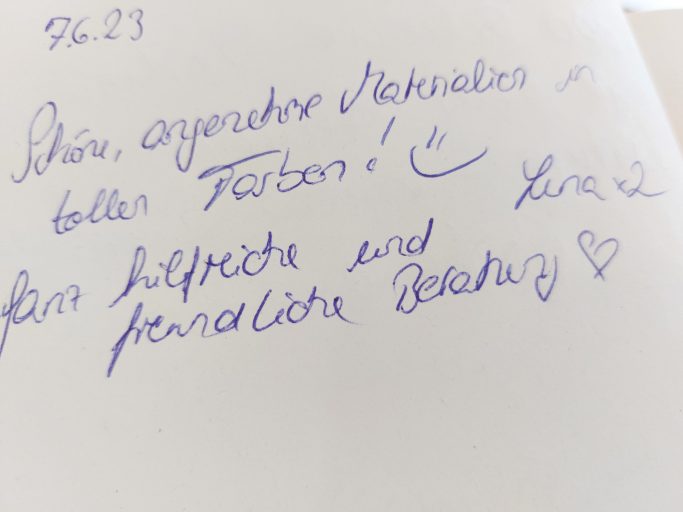 7.6.23
Schöne, angenehme Materialien in
tollen Farben!
Lena x2
Ganz hilfreiche und
freundliche Beratung ♡